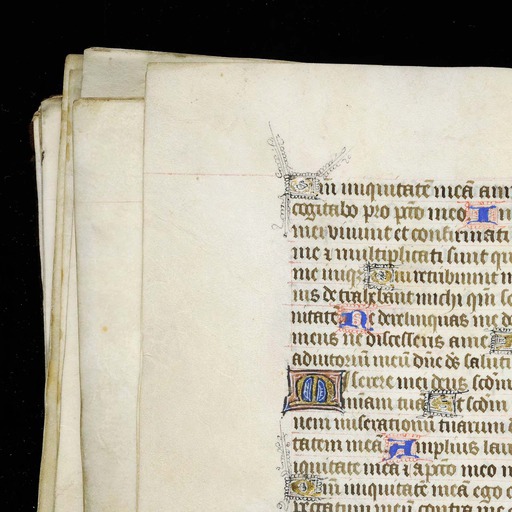 Qm̄ iniquitatē meā ann
cogitabo pro pc̄to meo In
mei viuunt et confirmati
me ⁊ multiplicati sunt qu
me iniq Qui retribuunt m
nis detrahebant michi qm̄ se
nitatē Ne derelinquas me do
meus ne discesseris a me
adiutoriū meū dn̄e ds̄ saluti
Miserere mei deus scd̄m
magnam tuā Et scd̄m
nem miserationū tuarum d
tatem meā Amplius laua
iniquitate mea ⁊ a pc̄to meo m
Qm̄ iniquitatē meā ego c
peccatum meū contra me e